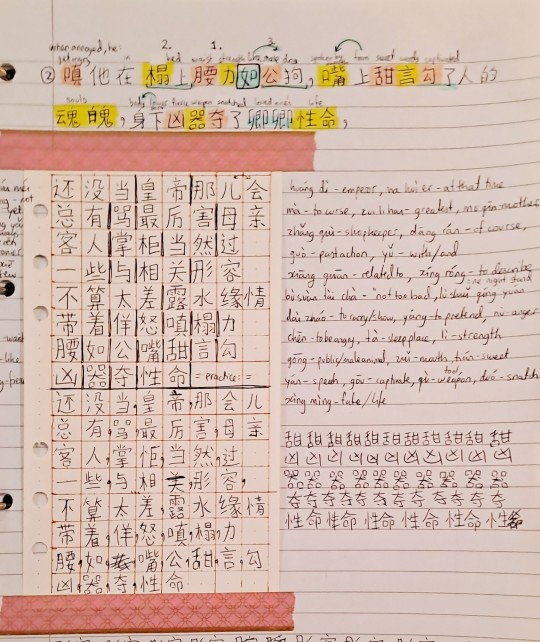 when annoyed, he:
getangry bed waist strength like male dog spoken by from sweet words captivated
2. 1. 3.
② 嗔他在榻上腰力如公狗,嘴上甜言勾了人的
souls body lower fierce weapon snatched loved one's life
魂魄,身下凶器夺了卿卿性命,
还没当皇帝那儿会
总有骂最厉害母亲
客人掌柜当然过
一些与相关形容
不算太差露水缘情
带着佯怒嗔榻力
腰如公嘴甜言勾
凶器夺性命 = practice: =
还没当,皇帝,那会儿
总有,骂,最厉害,母亲
客人,掌柜,当然,过
一些,与,相关,形容,
不算太差,露水缘情
带着,佯怒,嗔,榻,力
腰,如,嘴,公,甜,言,勾
凶,器,夺,性命
huáng dì - emperor, na hui er - at that time
mà - to curse, zui li hai - greatest, mǔ qīn - mother
zhǎng guì - shopkeeper, dāng rán - of course,
guò - past action, yǔ - with/and
xiāng guān - related to, xíng róng - to describe
one night stand
bù suàn tài chà - "not too bad, lù shuǐ yuán qíng
dài zháo - to carry/show, yáng - to pretend, nù - anger
chēn - to be angry, tà - sleep place, lì - strength
gōng - public/male animal, zuǐ - mouth, tián - sweet
tool
yán - speech, gōu - captivate, qì - weapon, duó - snatch
xìng mìng - fate/life
甜甜甜甜甜甜甜甜甜甜
凶凶凶凶凶凶凶凶凶凶
器器器器器器器器器器
夺夺夺夺夺夺夺夺夺夺
性命性命性命性命性命性命性命